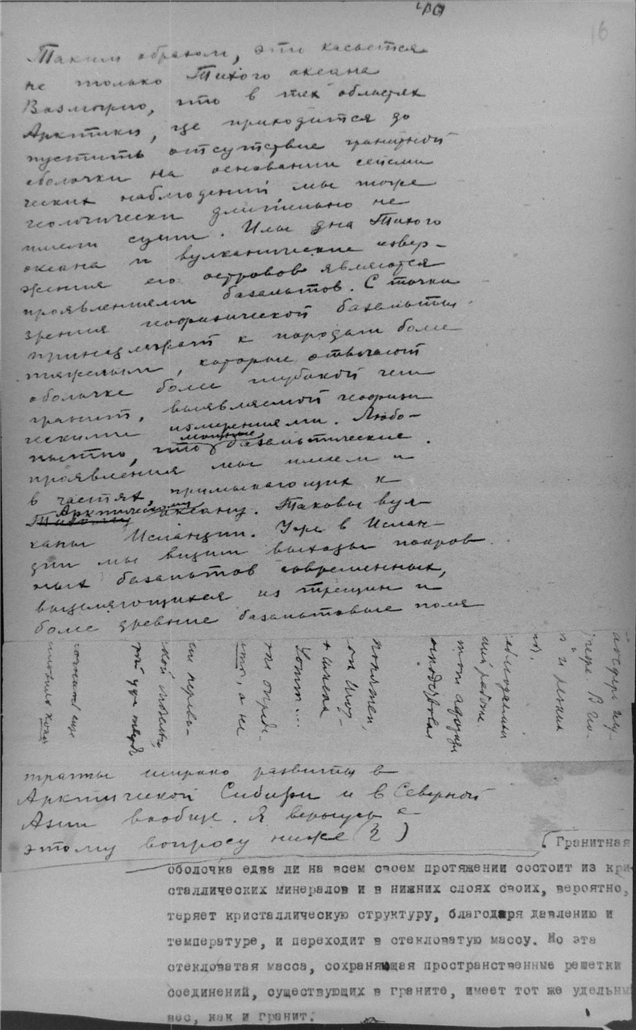 16
Таким образом, эти касается
не только Тихого океана
Возможно, что в тех областях
Арктики, где приходится до
пустить отсутствие гранитной
оболочки на основании сейсми
ческих наблюдений мы тоже
геологически длительно не
имели суши. Илы дна Тихого
океана и вулканические извер-
жения его островов являются
проявлениями базальтов. С точки
зрения геофизической базальты
принадлежат к породам более
тяжелым, которые отвечают
оболочке более глубокой чем
гранит, выявляемой геофизи
ческими измерениями. Любо-
пытно, что мощные базальтические
проявления мы имеем и
в частях, примыкающих к
Тихому Арктическому океану. Таковы вул-
каны Исландии. Уже в Ислан-
дии мы видим выходы покров
ных базальтов современных,
выделяющихся из трещин и
более древние базальтовые поля
траппы широко развиты в
Арктической Сибири и в Северной
Азии вообще. Я вернусь к
этому вопросу ниже (§ )
Гранитная
оболочка едва ли на всем своем протяжении состоит из кри
сталлических минералов и в нижних слоях своих, вероятно,
теряет кристаллическую структуру, благодаря давлению и
температуре, и переходит в стекловатую массу. Но эта
стекловатая масса, сохраняющая пространственные решетки
соединений, существующих в граните, имеет тот же удельный
вес, как и гранит.